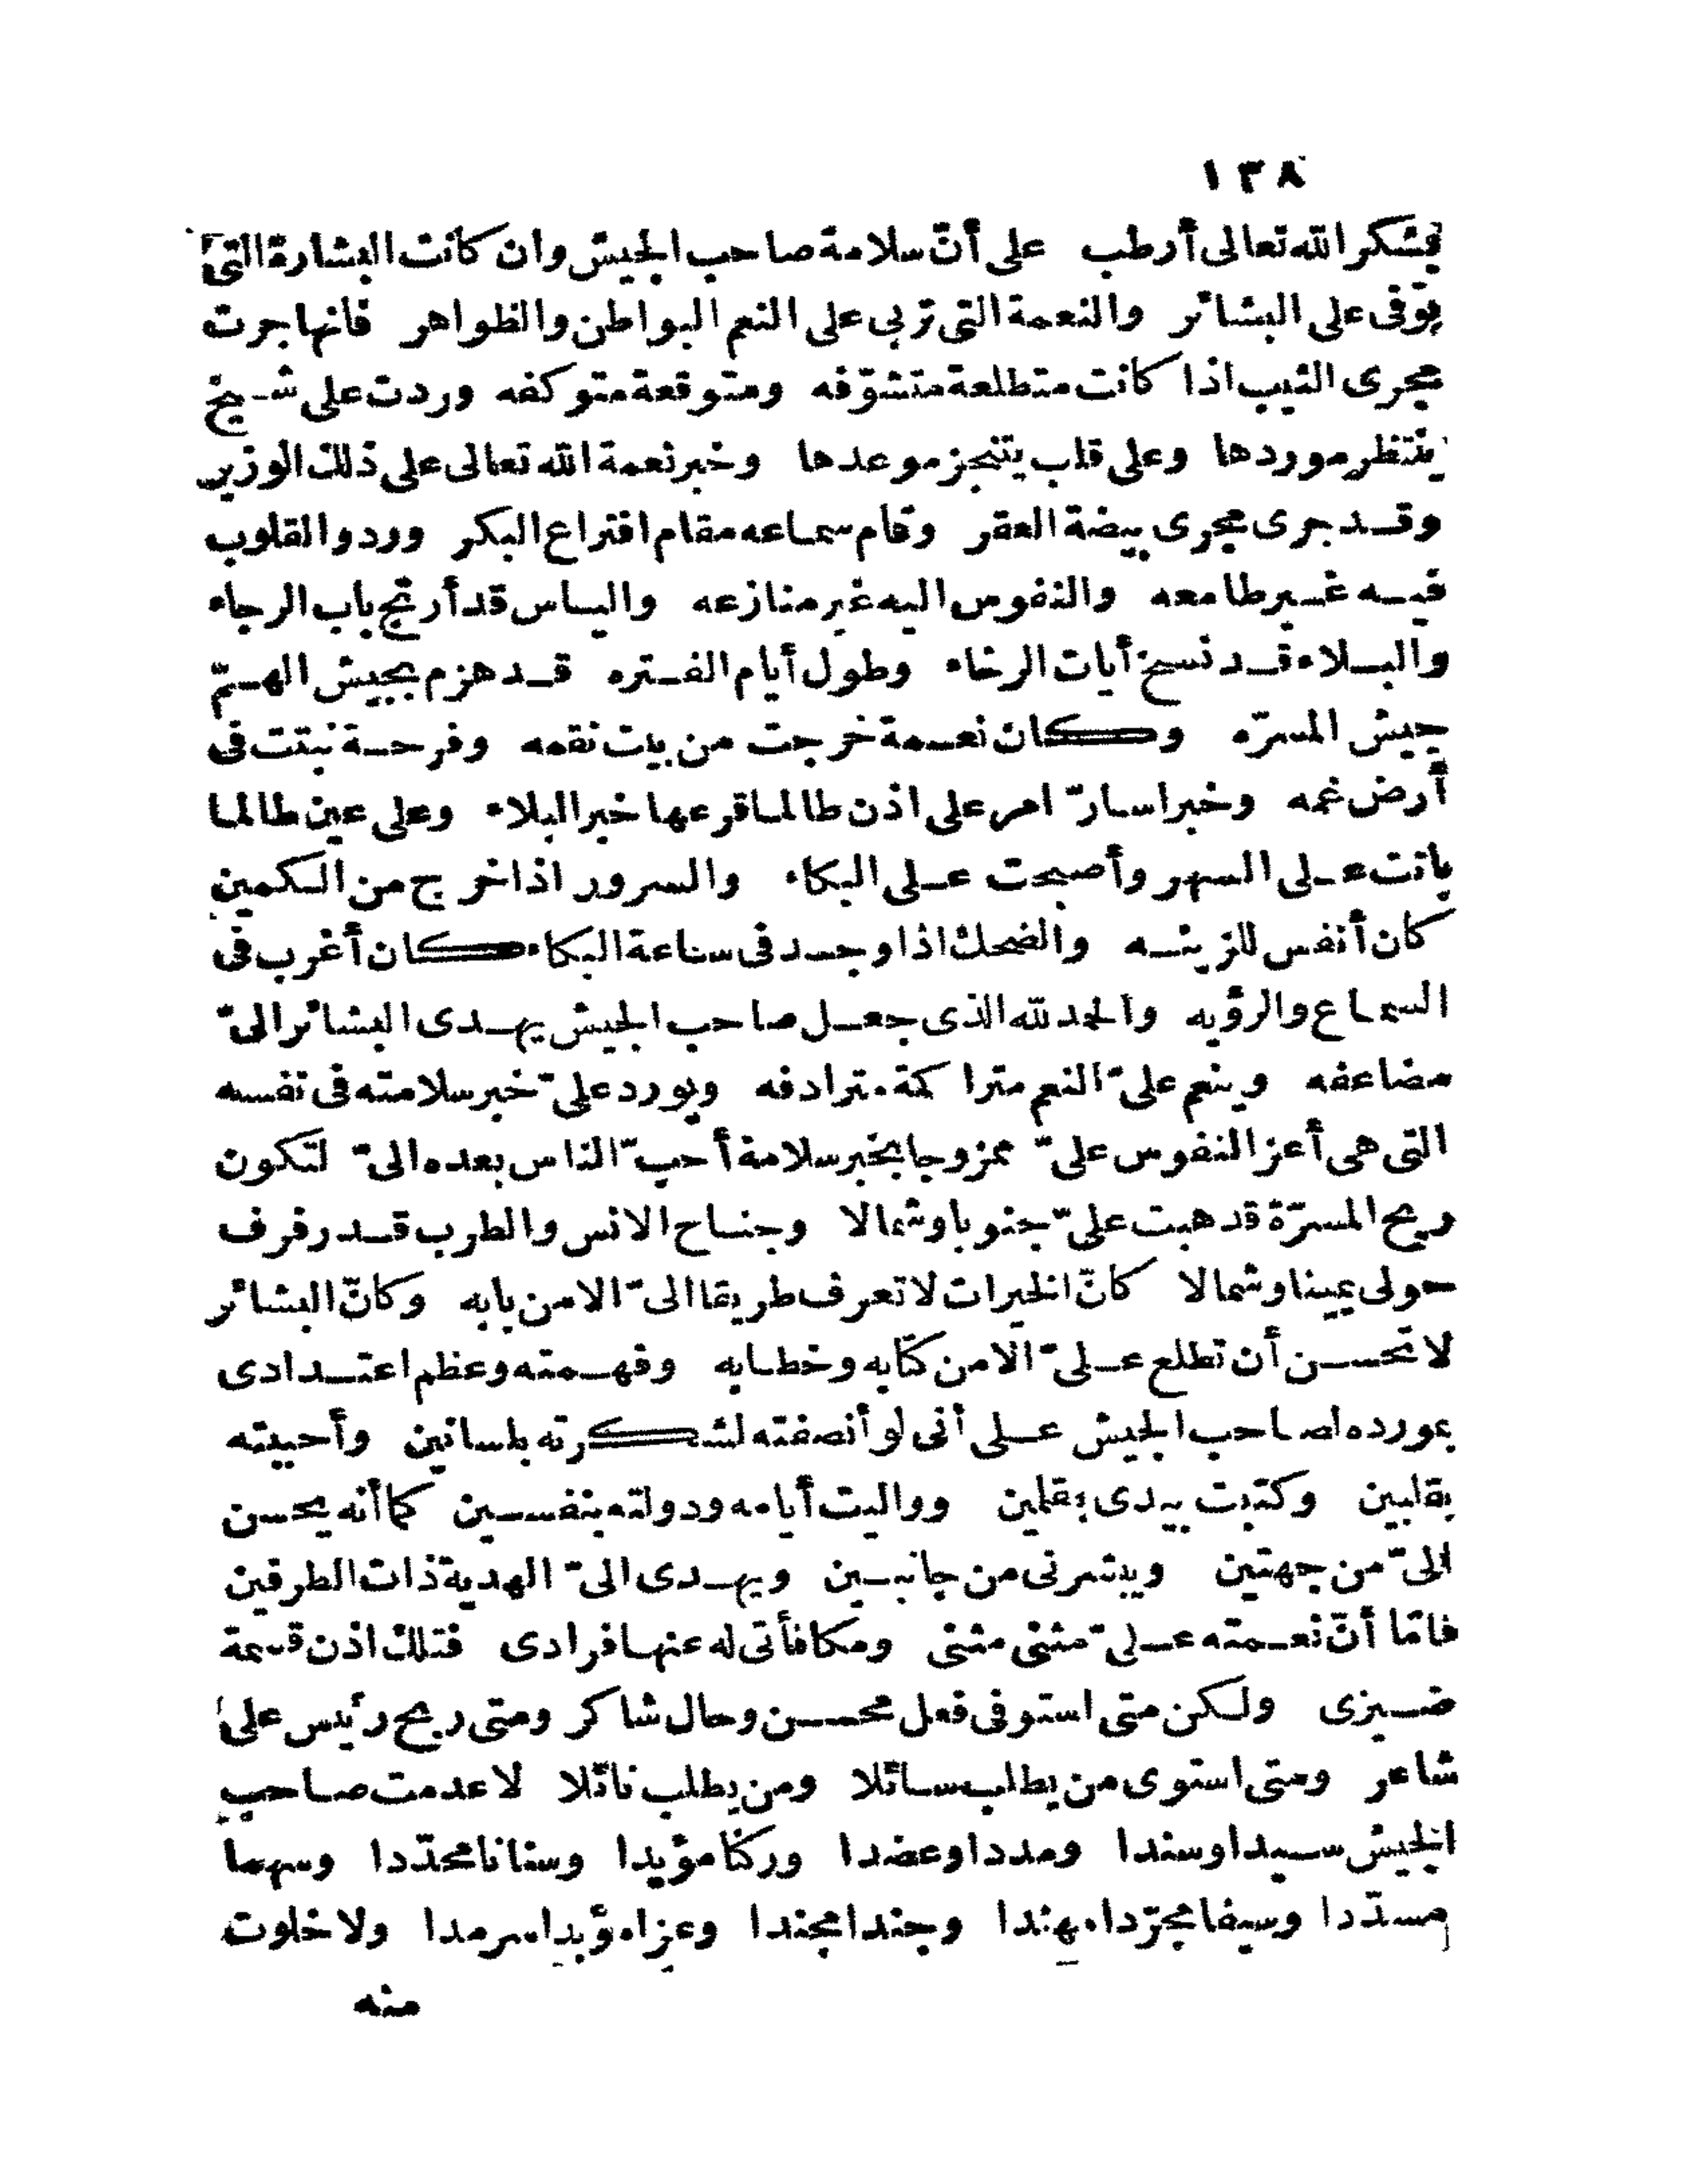 ١٣٨
بشكر الله تعالى أرطب على أنّ سلامة صاحب الجيش وان كانت البشارة التى
توفى على البشائر والنعمة التى تربى على النعم البواطن والظواهر فانها جرت
مجرى الثيب اذا كانت متطلعة متشوّفه ومتوقعة متوكفه وردت على شيخ
ينتظر موردها وعلى قلب يتنجز موعدها وخبر نعمة الله تعالى على ذلك الوزير
وقد جرى مجرى بيضة العقر وقام سماعه مقام افتراع البكر ورد والقلوب
فيه غير طامعه والنفوس اليه غير منازعه والياس قد أرتج باب الرجاء
والبلاء قد نسخ أيات الرخاء وطول أيام الفتره قد هزم بجيش الهمّ
جيش المسرّه وكان نعمة خرجت من بيت نقمه وفرحة نبتت فى
أرض غمه وخبرا سارّ امر على اذن طالما قرعها خبر البلاء وعلى عين طالما
باتت على السهر وأصبحت على البكاء والسرور اذا خرج من الكمين
كان أنفس للزينه والضحك اذا وجد فى ساعة البكاء كان أغرب فى
السماع والرؤيه والحمد لله الذى جعل صاحب الجيش يهدى البشائر الىّ
مضاعفه وينعم علىّ النعم متراكمة مترادفه ويورد علىّ خبر سلامته فى نفسه
التى هى أعز النفوس علىّ ممزوجا بخبر سلامة أحبّ الناس بعده الىّ لتكون
ريح المسرّة قد هبت علىّ جنوبا وشمالا وجناح الانس والطرب قد رفرف
حولى يمينا وشمالا كانّ الخيرات لا تعرف طريقا الىّ الا من بابه وكانّ البشائر
لا تحسن أن تطلع علىّ الا من كتابه وخطابه وفهمته وعظم اعتدادى
بمورده لصاحب الجيش على أنى لو أنصفته لشكرته بلسانين وأحببته
بقلبين وكتبت بيدى بقلمين وواليت أيامه ودولته بنفسين كما أنه يحسن
الىّ من جهتين ويبشرنى من جانبين ويهدى الىّ الهدية ذات الطرفين
فامّا أنّ نعمته علىّ مثنى مثنى ومكافأتى له عنها فرادى فتلك اذن قسمة
ضيزى ولكن متى استوفى فعل محسن وحال شاكر ومتى ربح رئيس على
شاعر ومتى استوى من يطلب سائلا ومن يطلب نائلا لا عدمت صاحب
الجيش سيدا وسندا ومددا وعضدا وركنا مؤيدا وسنانا محدّدا وسهما
مسدّدا وسيفا مجرّدا مهندا وجندا مجندا وعزا مؤبدا سرمدا ولا خلوت
منه